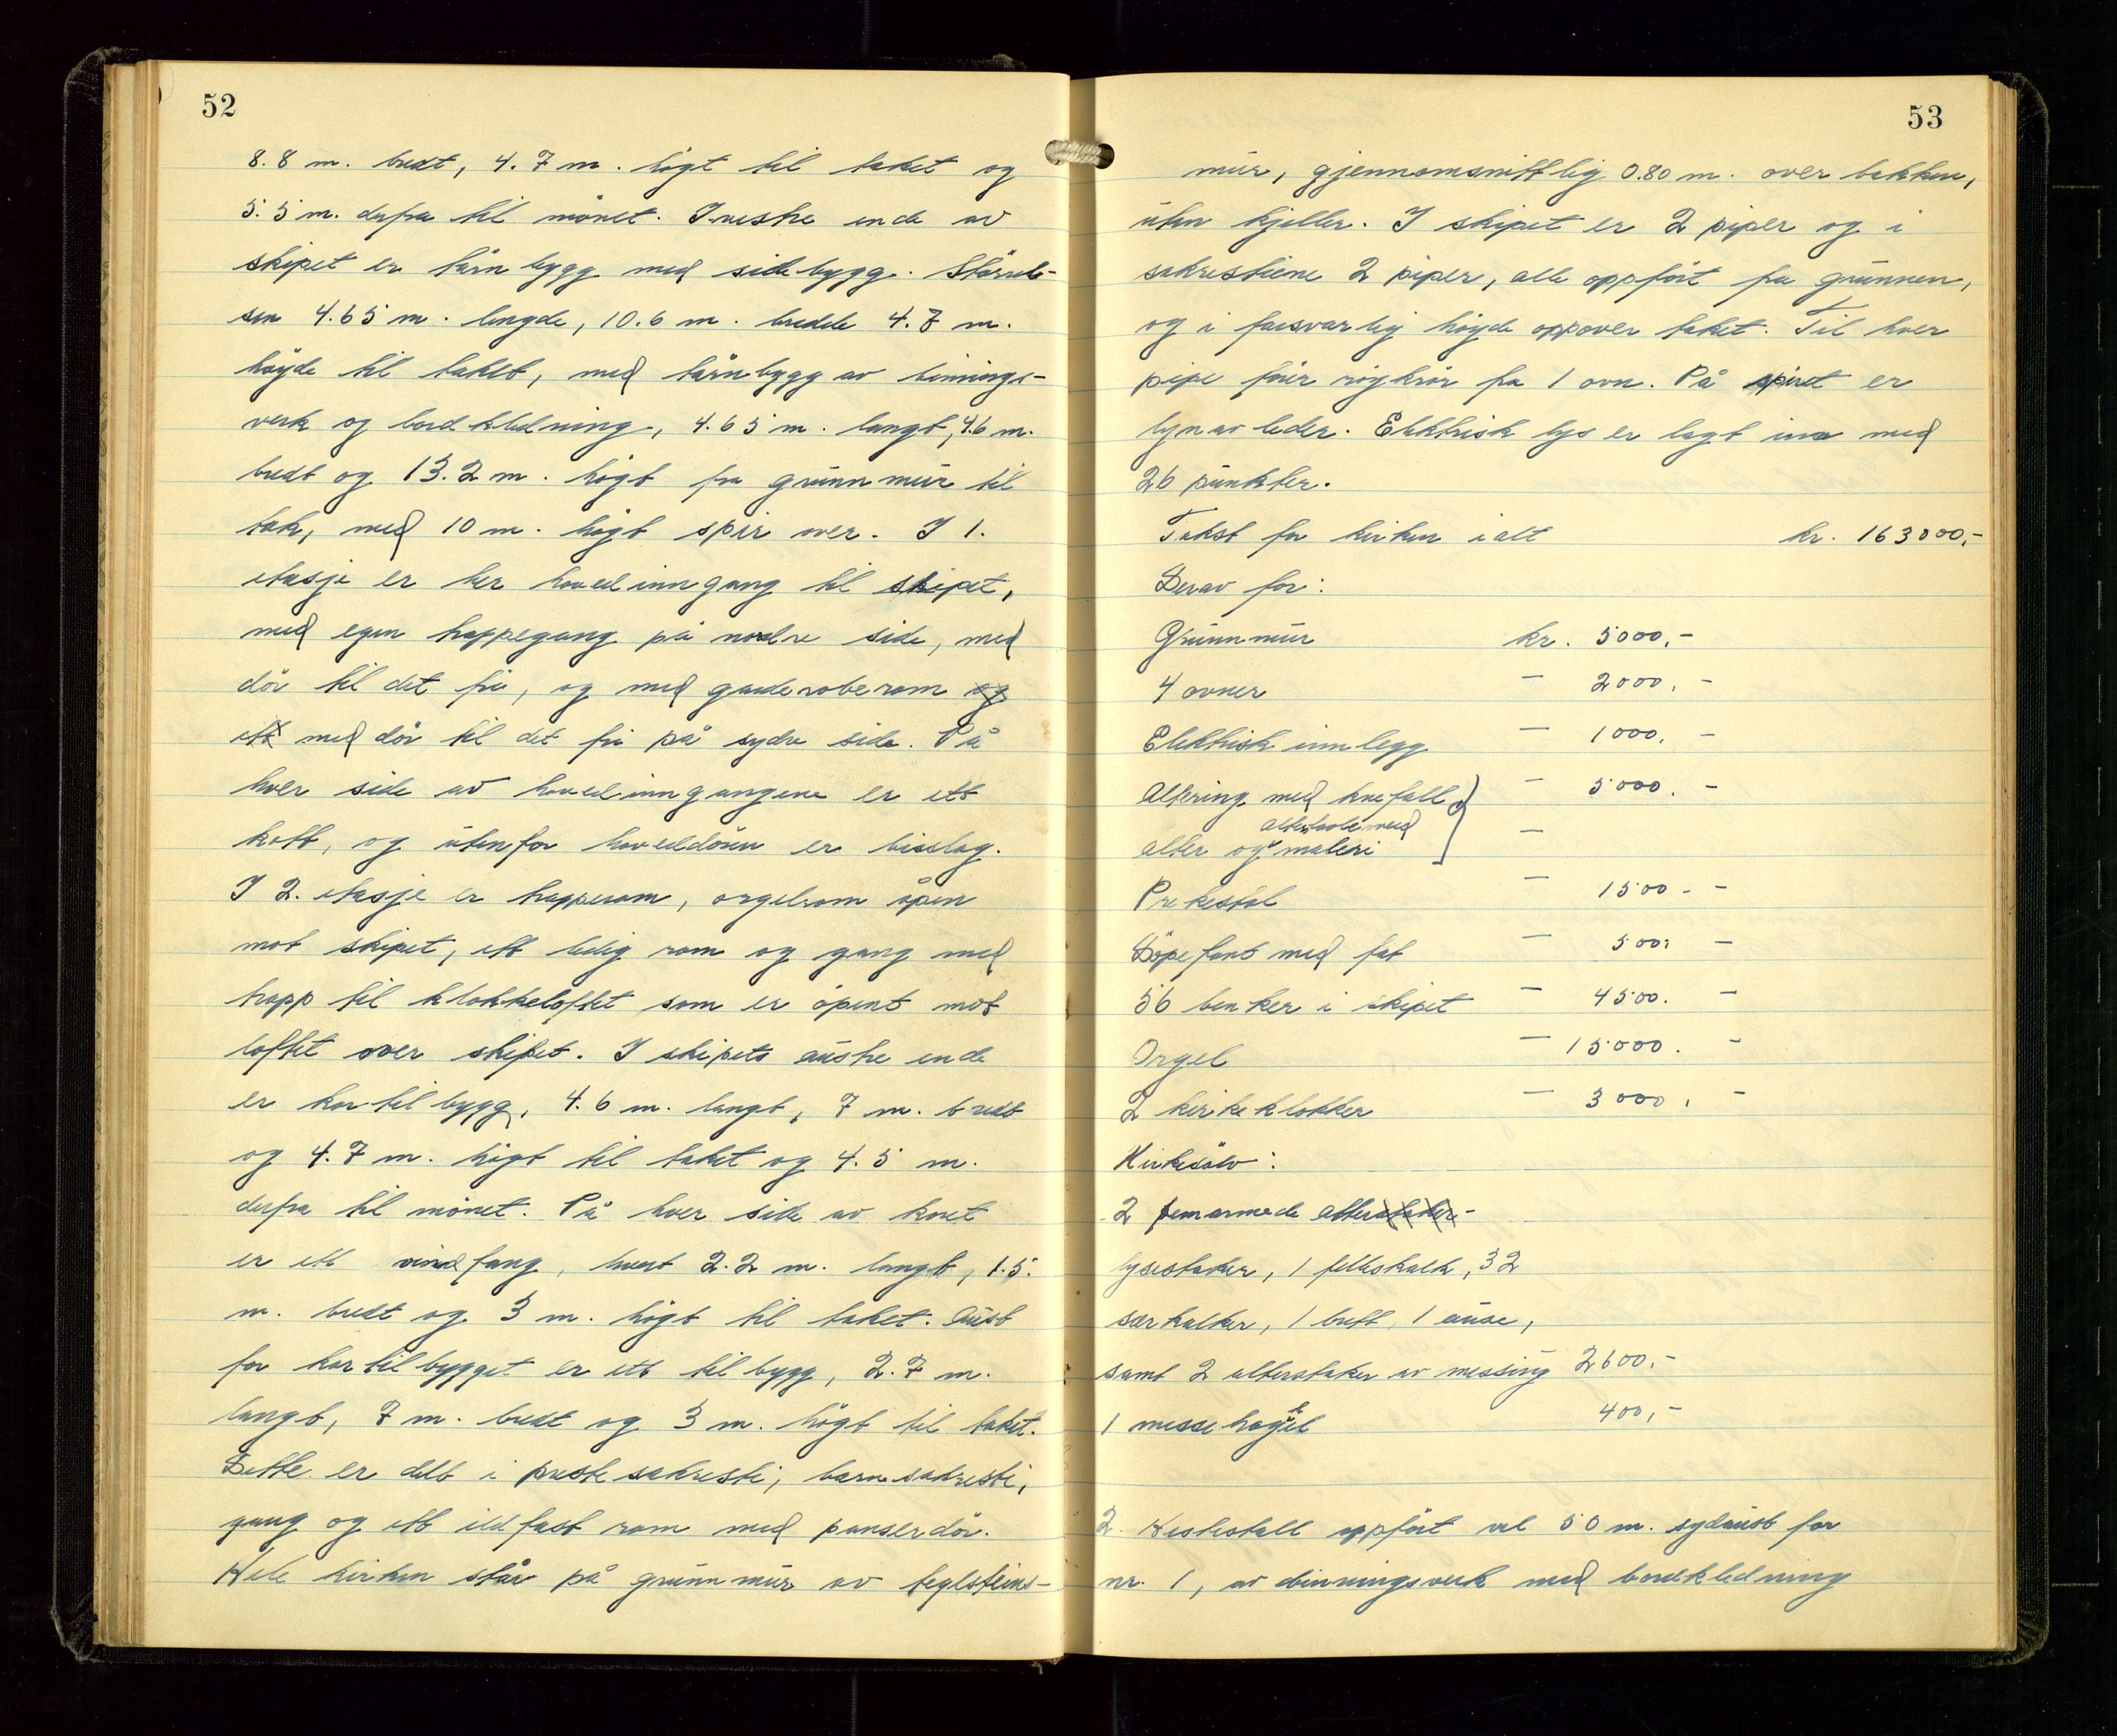 52
8.8 m. bredt, 4.7 m. högt til taket og
5.5 m. derfra til mönet. I vestre ende av
skipet er tårnbygg med sidebygg. Störrel-
sen 4.65 m. lengde, 10.6 m. bredde 4.7 m.
höyde til taket, med tårnbygg av binnings-
verk og bordkledning, 4.65 m. langt, 4.6 m.
bredt og 13.2 m. högt fra grunnmur til
tak, med 10 m. högt spir over. I 1.
etasje er her hovedinngang til skipet,
med egen trappegang på nordre side, med
dör til det fri, og med garderoberom og
ett med dör til det fri på sydre side. På
hver side av hovedinngangene er ett
kott, og utenfor hoveddören er bislag.
I 2. etasje er trapperom, orgelrom åpen
mot skipet, ett ledig rom og gang med
trapp til klokkeloftet som er åpent mot
loftet over skipet. I skipets austre ende
er kortilbygg, 4.6 m. langt, 7 m. bredt
og 4.7 m. högt til taket og 4.5 m.
derfra til mönet. På hver side av koret
er ett vindfang, hvert 2.2 m. langt, 1.5.
m. bredt og 3 m. högt til taket. Aust
for kortilbygget er ett tilbygg, 2.7 m.
langt, 7 m. bredt og 3 m. högt til taket.
Dette er delt i prestesakresti, barnesakresti,
gang og ett ildfast rom med panserdör.
Hele kirken står på grunnmur av teglsteins-
53
mur, gjennomsnittlig 0.80 m. over bakken,
uten kjeller. I skipet er 2 piper og i
sakrestiene 2 piper, alle oppfört fra grunnen,
og i forsvarlig höyde oppover taket. Til hver
pipe förer röykrör fra 1 ovn. På spiret er
lynavleder. Elektrisk lys er lagt inn med
26 punkter.
Takst for kirken i alt kr. 163000,-
Derav for:
Grunnmur kr. 5000,-
4 ovner - 2000, -
Elektrisk innlegg - 1000, -
Altering med knefall - 5000. -
altertavle med -
alter og maleri
Prekestol - 1500 - -
Döpefont med fat - 500: -
56 benker i skipet - 4500. -
Orgel - 15000. -
2 kirkeklokker - 3000, -
Kirkesölv:
2 femarmede alterstaker-
lysestaker, 1 felleskalk, 32
særkalker, 1 brett, 1 ause,
samt 2 alterstaker av messing 2600,-
1 messehagel 400,-
2. Hestestall oppfört vel 50 m. sydaust for
nr. 1, av binningsverk med bordkledning